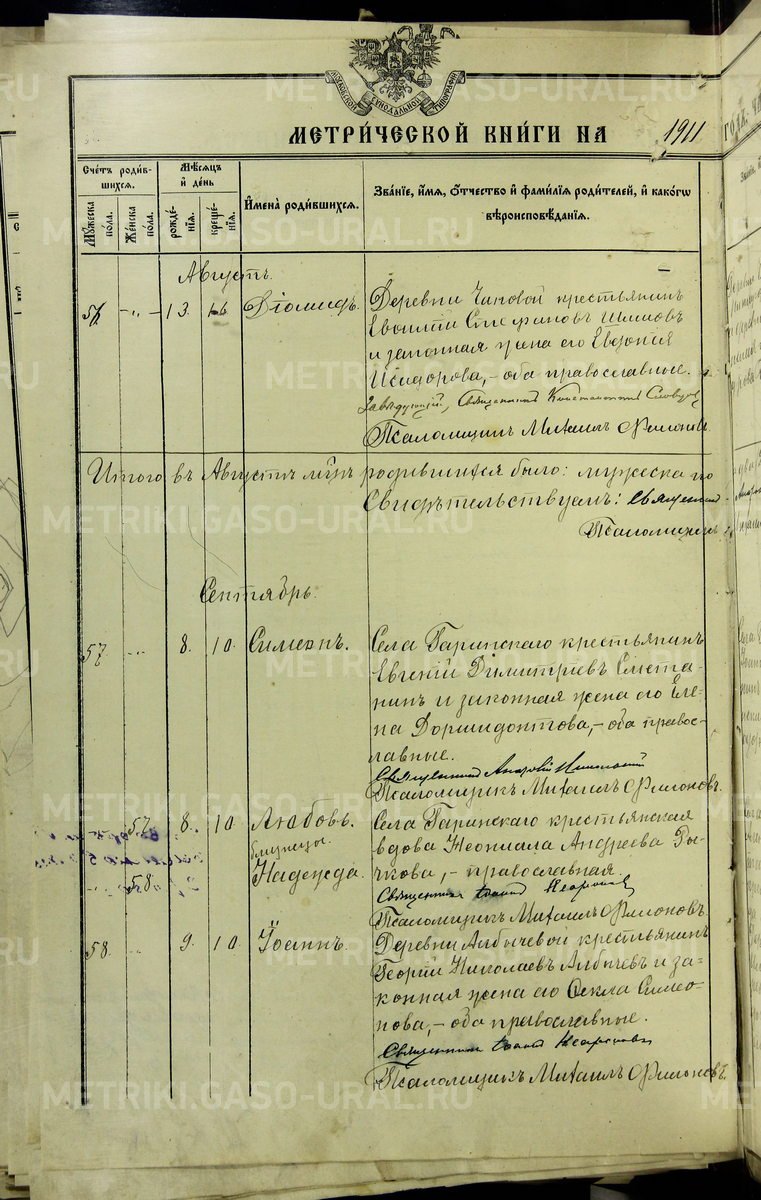 МЕТРИ́ЧЕСКОЙ КНИ́ГИ НА 1911
Сче́тъ роди́вшихся.
Му́жеска по́ла.
Же́нска по́ла.
Мѣ́сяцъ и́ де́нь
рожде́нїя.
креще́нїя.
И҆мена̀ роди́вшихся.
Зва́нїе, и҆́мѧ, ѻ҆́тчество и҆ фами́лїѧ роди́телей, и҆ како́гѡ
вѣроисповѣ́данїѧ.
Августъ.
56 -„- 13. 16 Діомидъ. Деревни Чановой крестьянинъ
Евѳимій Стефановъ
и законная жена его Евдокія
Исидорова, - оба православные.
Завѣдующій, Священникъ Константинъ Словцовъ
Псаломщикъ Михаилъ Филоновъ
Итого въ Августѣ м-цѣ родившихся было: мужеска по
Свидѣтельствуемъ: Священникъ
Псаломщикъ
Сентябрь.
57 -„- 8. 10. Симеонъ. Села Гаринскаго крестьянинъ
Евгеній Димитріевъ Смета-
нинъ и законная жена его Еле-
на Дормидонтова, - оба правос-
лавные.
Священникъ
Псаломщикъ Михаилъ Филоновъ.
57. 8. 10 Любовь. Села Гаринскаго крестьянская
близнецы вдова Неонила Андреева Ры-
58 Надежда. чкова, - православная
Священникъ Іоаннъ
Псаломщикъ Михаилъ Филоновъ.
58. 9. 10. Іоаннъ. Деревни Албычевой крестьянинъ
Георгій Николаевъ Албычевъ и за-
конная жена его Ѳекла Симео-
нова, - оба православные.
Священникъ Іоаннъ
Псаломщикъ Михаилъ Филоновъ.
METRIKI.GASO-URAL.RU